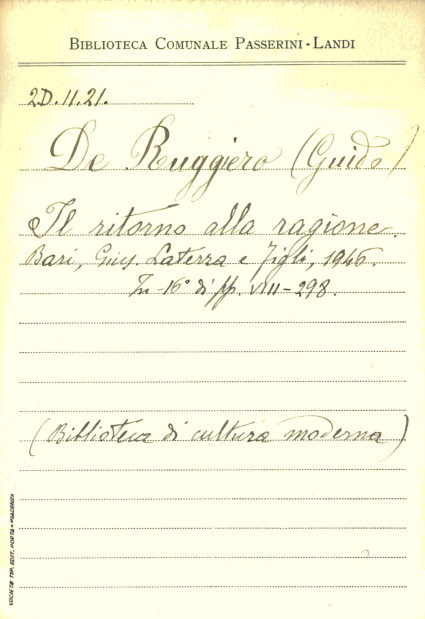 BIBLIOTECA COMUNALE PASSERINI-LANDI
2D.11.21.
De Ruggiero (Guido)
Il ritorno alla ragione.
Bari, Gius. Laterza e figli, 1946.
In-16° di pp. VIII-298.
(Biblioteca di cultura moderna)
SOCIETÀ TIP. EDIT. PORTA - PIACENZA